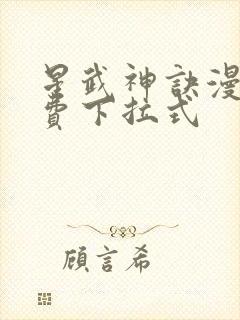 星武神訣漫
費下拉式
顧言希